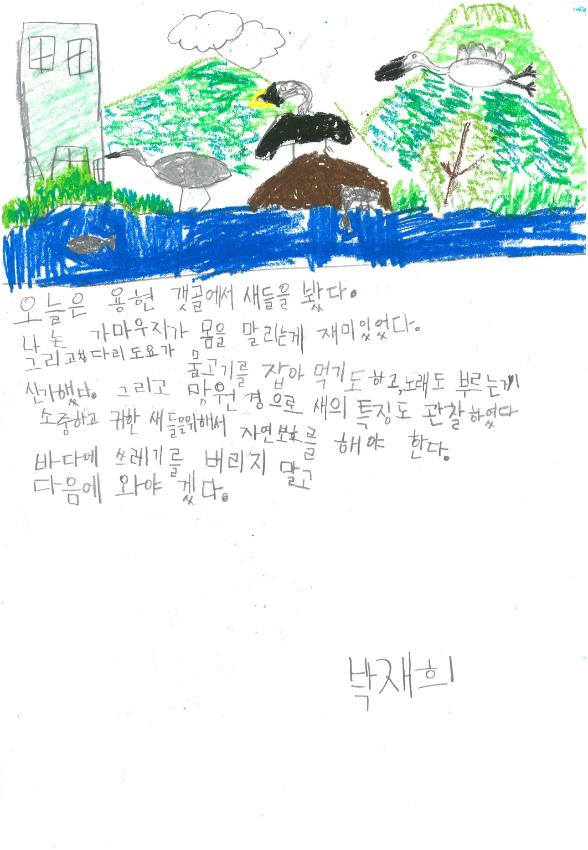 오늘은 용현 갯골에서 새들을 봤다.
나는 가마우지가 몸을 말리는게 재미있었다.
그리고 다리도요가 물고기를 잡아 먹기도하고, 노래도 부르는게
신기했다. 그리고 망원경으로 새의 특징도 관찰하였다
소중하고 귀한 새들을위해서 자연보호를 해야 한다.
바다에 쓰레기를 버리지 말고
다음에 와야 겠다.
박재희